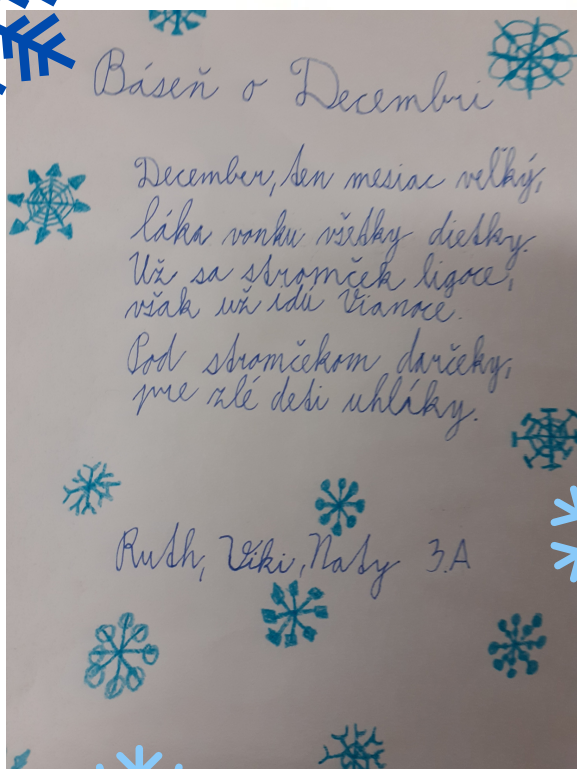 Báseň o Decembri
December, ten mesiac veľký,
láka vonku všetky dietky.
Už sa stromček ligoce,
však už idú Vianoce.
Pod stromčekom darčeky,
pre zlé deti uhláky.
Ruth, Viki, Naty 3.A